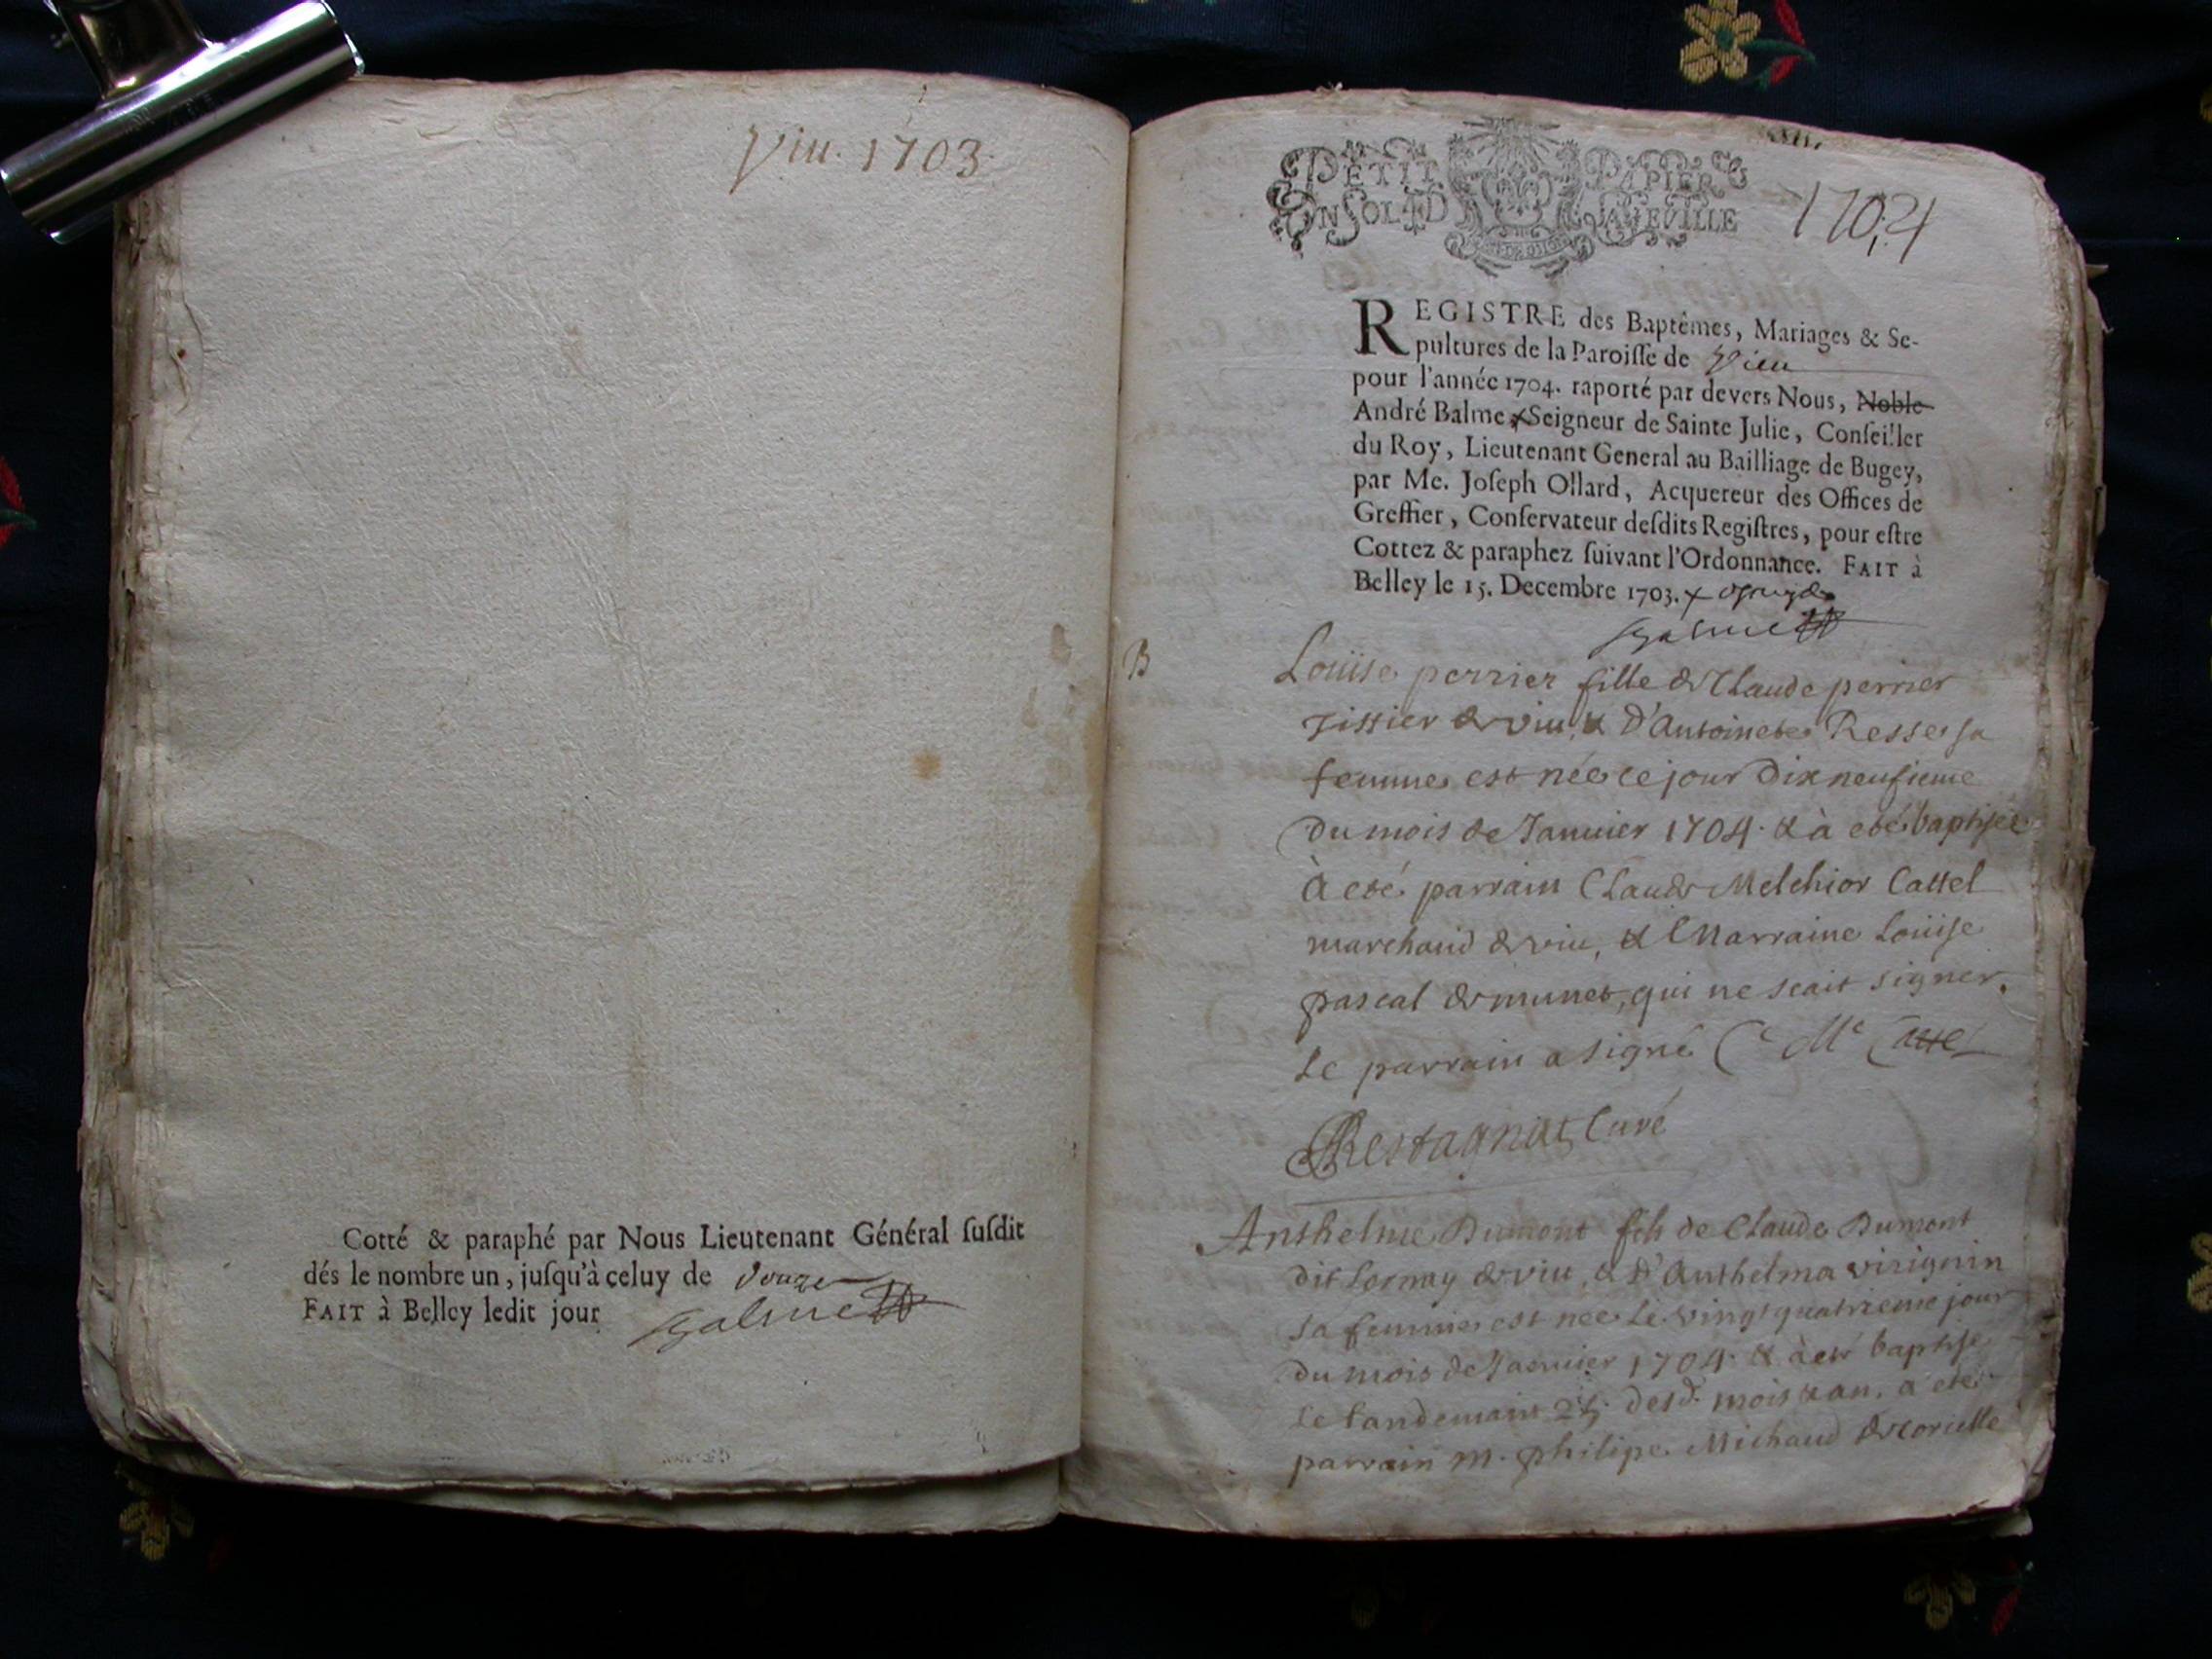 Viu. 1703
Cotté & paraphé par Nous Lieutenant Général ſuſdit
dés le nombre un, juſqu'à celuy de douze
FAIT à Belley ledit jour
PETIT PAPIER
UN SOL 4 D LA FEUILLE
1704
REGISTRE des Baptêmes, Mariages & Se-
pultures de la Paroiſſe de Vieu
pour l'année 1704. raporté par devers Nous, Noble
André Balme, Seigneur de Sainte Julie, Conſeiller
du Roy, Lieutenant General au Bailliage de Bugey,
par Me. Joſeph Ollard, Acquereur des Offices de
Greffier, Conſervateur deſdits Regiſtres, pour eſtre
Cottez & paraphez ſuivant l'Ordonnance. FAIT à
Belley le 15. Decembre 1703.
Balme
B
Loüise perrier fille de Claude perrier
Tissier de viu, & D'Antoinete Resse sa
femme est née ce jour Dixneufieme
Du mois de Januier 1704. & à eté baptisée
À eté parrain Claude Melchior Cattel
marchand de viu, & Marraine Loüise
pascal de munet, qui ne scait signer.
Le parrain a signé C Me Cattel
Restagnat Curé
Anthelme Dumont fils de Claude Dumont
dit Lornay de viu, & D'Anthelma virignin
sa femme est née Le vingt quatrieme jour
Du mois de Januier 1704. & à eté baptise
Le Landemain 25. desd. mois & an. a eté
parrain m. philipe Michaud de